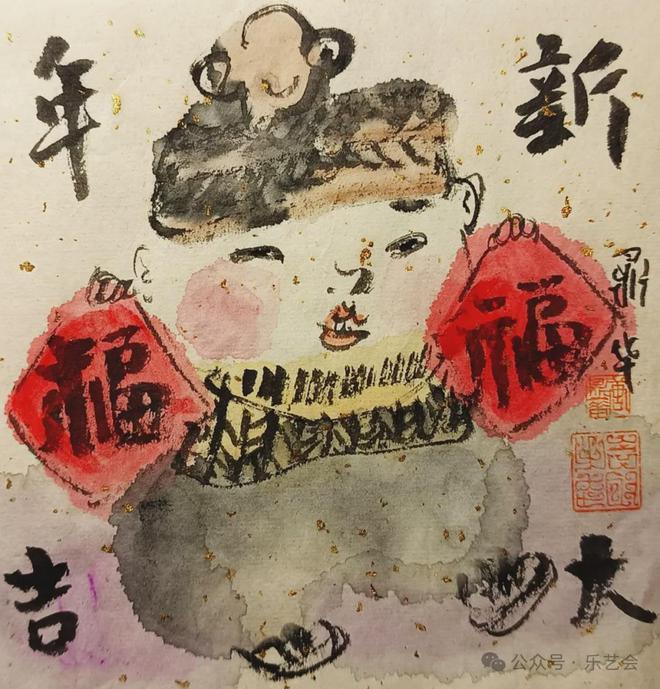 新年
福
福
鼎华
大吉
公众号·乐艺会